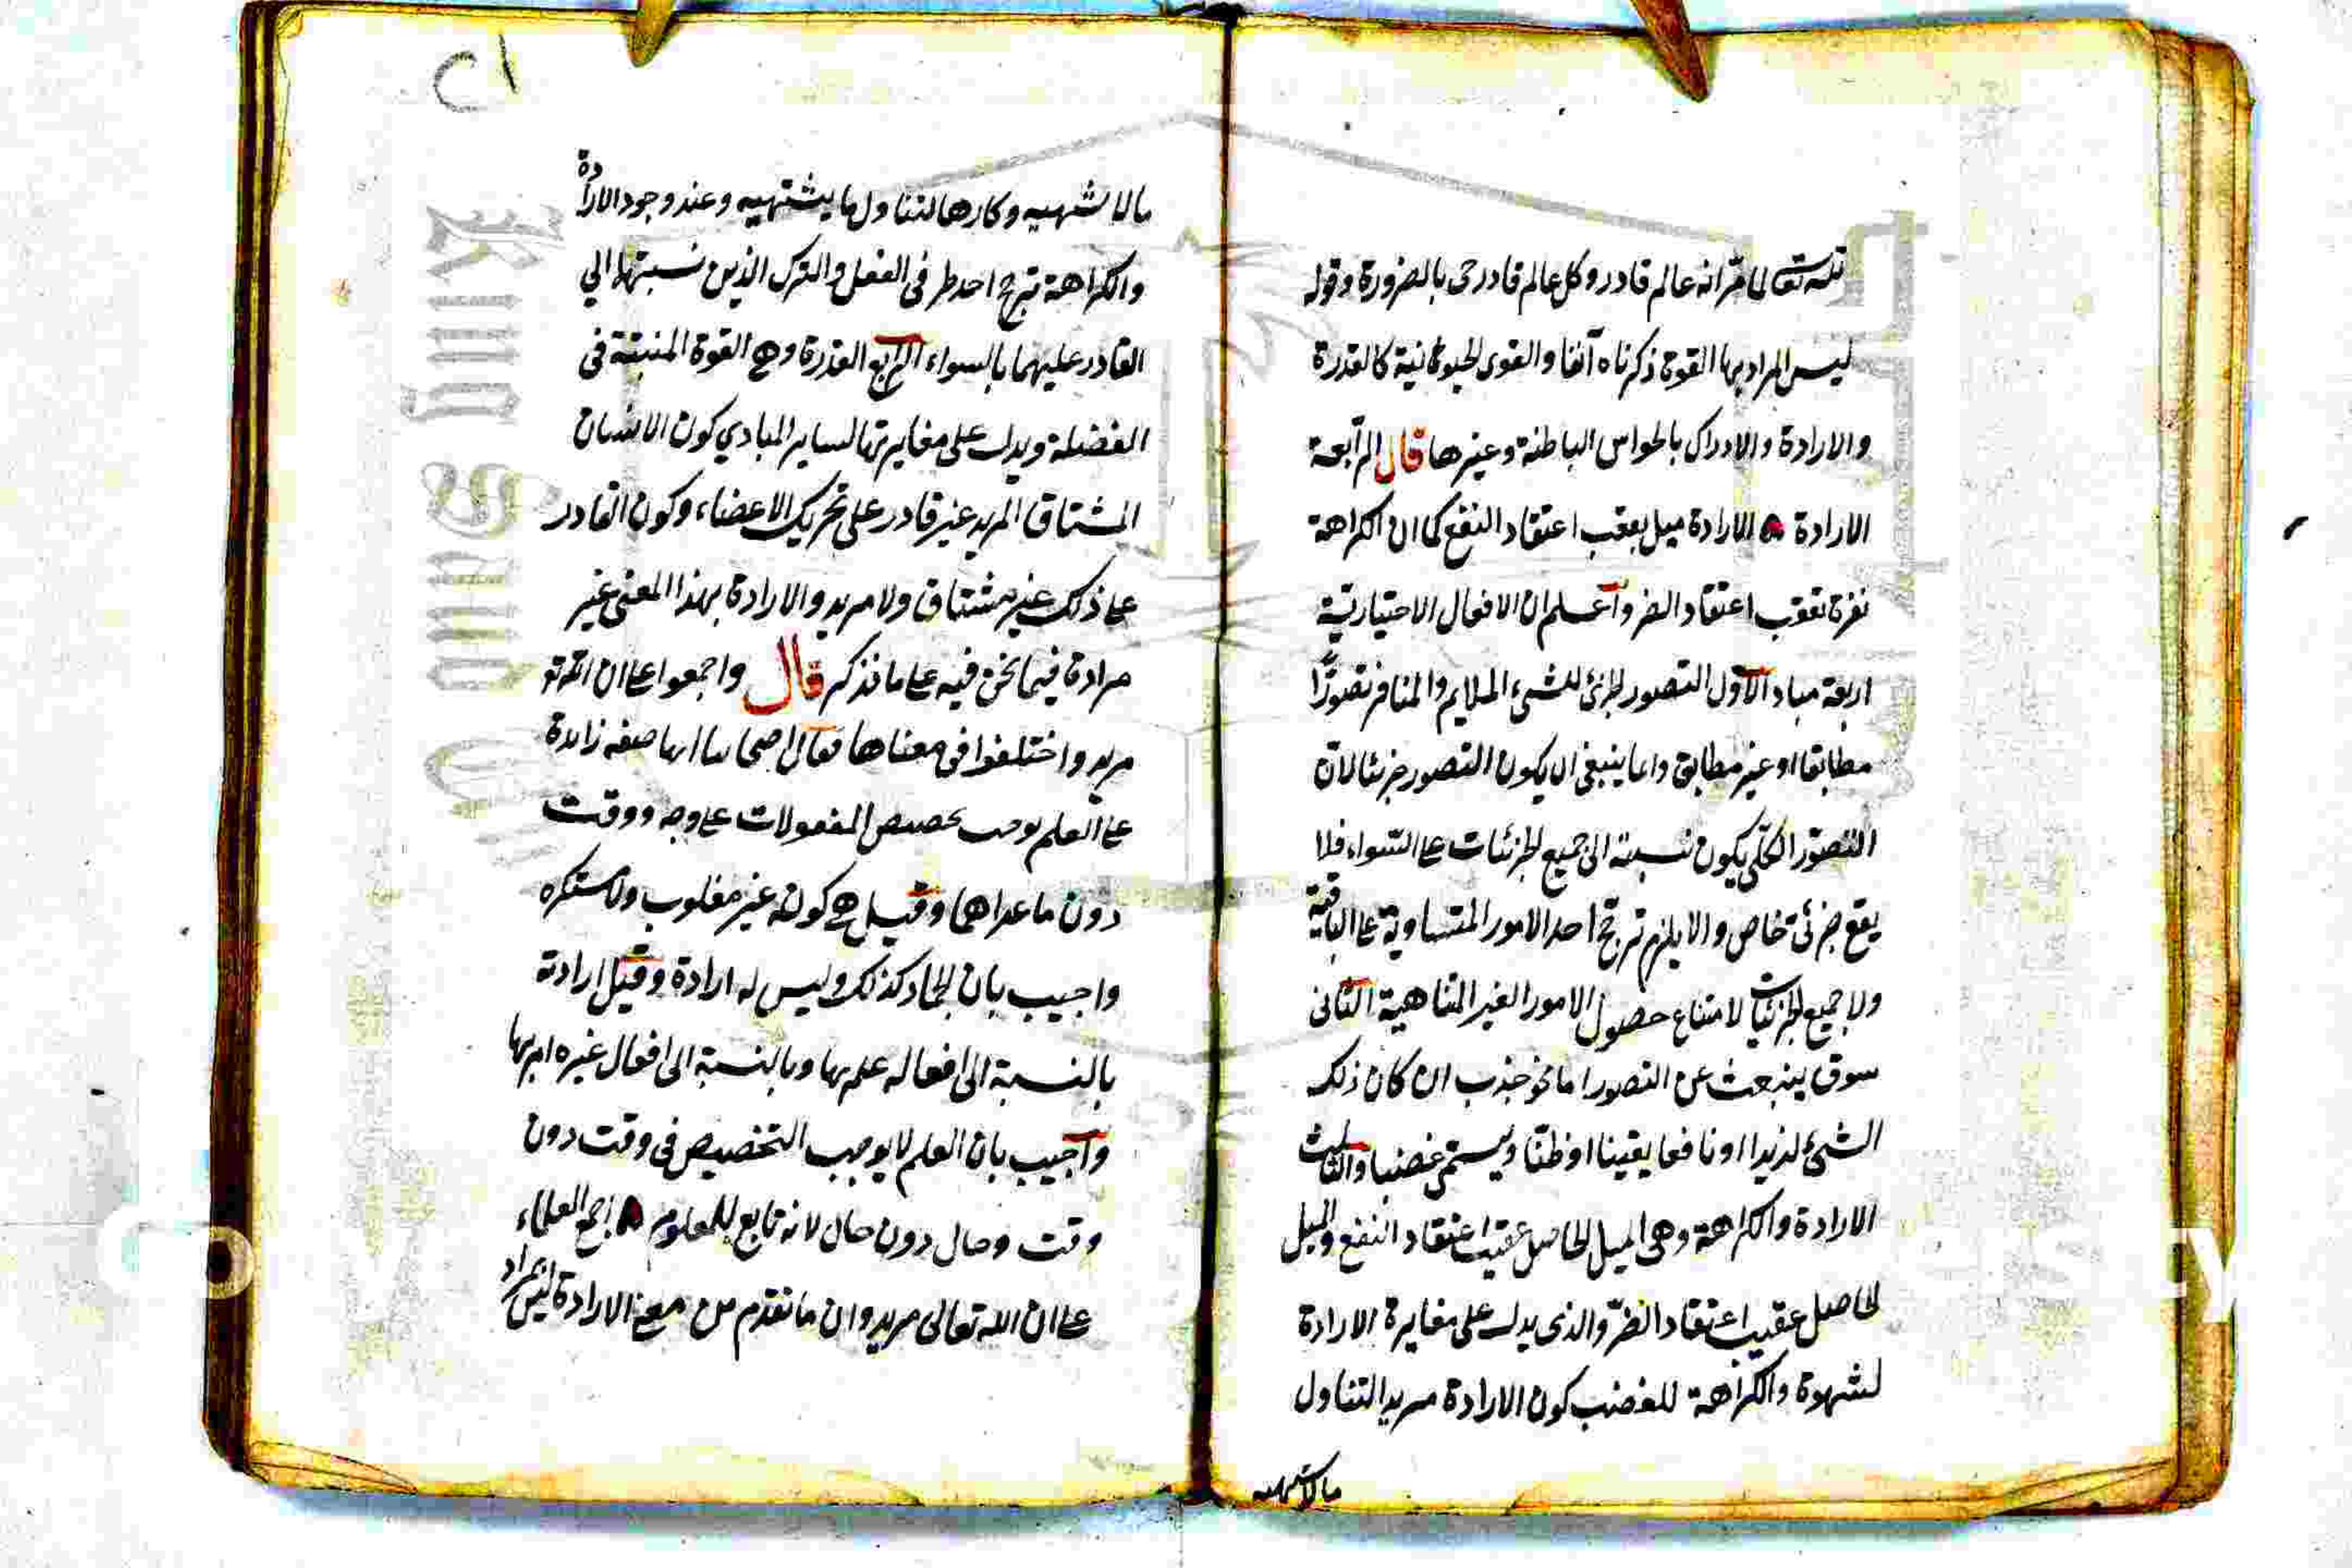 لله تعالى لما مرّ انه عالم قادر وكل عالم قادر حى بالضرورة وقوله
ليس المراد بها القوة ذكرناه آنفا والقوى الحيوانية كالقدرة
والارادة والادراك بالحواس الباطنة وغيرها قال الرابعة
الارادة الارادة ميل يعقب اعتقاد النفع كما ان الكراهة
نفرة تعقب اعتقاد الضر واعلم ان الافعال الاختيارية
اربعة مباد الاول التصور الجزئى للشىء الملايم والمنافر تصورًا
مطابقا او غير مطابق وانما ينبغى ان يكون التصور جزئيا لان
التصور الكلّى يكون نسبته الى جميع الجزئيات على السّواء فلا
يقع جزئى خاص والا يلزم ترجّح احد الامور المتساوية على الباقية
ولا جميع الجزئيات لامتناع حصول الامور الغير المتناهية الثانى
شوق ينبعث عن التصور اما نحو جذب ان كان ذلك
الشىء لذيذا او نافعا يقينا او ظنّا ويسمّى غضبا والثالث
الارادة والكراهة وهى الميل الحاصل عقيب اعتقاد النفع والميل
الحاصل عقيب اعتقاد الضرّ والذى يدل على مغايرة الارادة
لشهوة والكراهة للغضب كون الارادة مريدا لتناول
مالا يشتهيه
مالا يشتهيه وكارها لتناول ما يشتهيه وعند وجود الارادة
والكراهة ترجح احد طرفى الفعل والترك الذين نسبتهما الي
القادر عليهما بالسواء الرابع القدرة وهى القوة المنبثة فى
العضلة ويدل على مغايرتها لساير المبادي كون الانسان
المشتاق المريد غير قادر على تحريك الاعضاء وكون القادر
على ذلك غير مشتاق ولا مريد والارادة بهذا المعنى غير
مرادة فيما نحن فيه على ما نذكر قال واجمعوا على ان الله تع
مريد واختلفوا فى معناها فقال اصحابنا انها صفة زايدة
على العلم توجب تخصيص المفعولات على وجه ووقت
دون ما عداهما وقيل هى كونه غير مغلوب ولا مستكره
واجيب بان الجماد كذلك وليس له ارادة وقيل ارادته
بالنسبة الى افعاله علمه بها وبالنسبة الى افعال غيره امر بها
واجيب بان العلم لا يوجب التخصيص فى وقت دون
وقت وحال دون حال لانه تابع للمعلوم اجمع العلماء
على ان الله تعالى مريد وان ما تقدم من معنى الارادة ليس المراد
٢١
King Saud